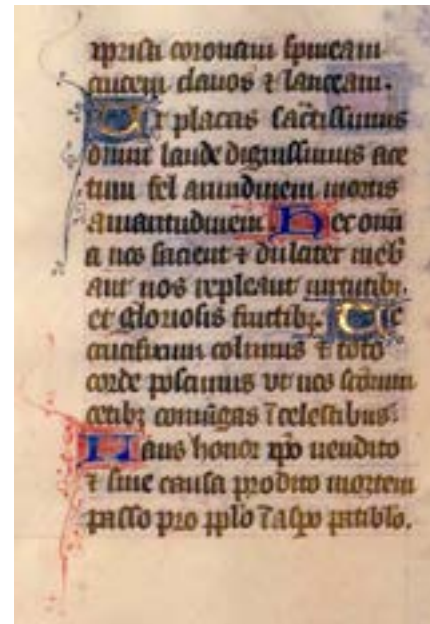 xpristi coronam spineam
crucem clavos ⁊ lanceam.
Et plagas sāctissimas
omni laude dignissimas ace
tum fel arundinem mortis
amaritudinem Hec omni
a nos sacient ⁊ dulciter inebri
ant nos repleant uirtutibꝫ.
et gloriosis fructibꝫ. Te
crucifixum colimus ⁊ toto
corde poscimus ut nos
cetibꝫ coniūgas ī celestibus.
Laus honor xp̄o uendito
⁊ sine causa prodito mortem
passo pro pplo ī aspo patiblo.